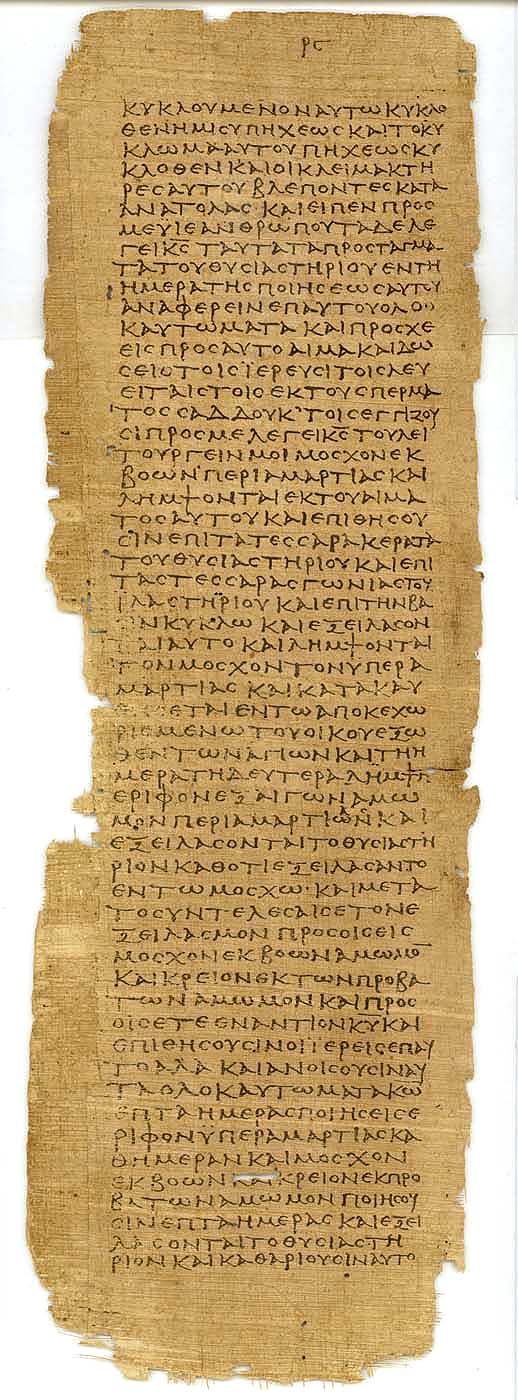 ρϛ
ΚΥΚΛΟΥΜΕΝΟΝΑΥΤΩΚΥΚΛΟ
ΘΕΝΗΜΙϹΥΠΗΧΕΩϹΚΑΙΤΟΚΥ
ΚΛΩΜΑΑΥΤΟΥΠΗΧΕΩϹΚΥ
ΚΛΟΘΕΝΚΑΙΟΙΚΛΕΙΜΑΚΤΗ
ΡΕϹΑΥΤΟΥΒΛΕΠΟΝΤΕϹΚΑΤΑ
ΑΝΑΤΟΛΑϹ ΚΑΙΕΙΠΕΝΠΡΟϹ
ΜΕΥΙΕΑΝΘΡΩΠΟΥΤΑΔΕΛΕ
ΓΕΙΚ̅Ϲ̅ΤΑΥΤΑΤΑΠΡΟϹΤΑΓΜΑ
ΤΑΤΟΥΘΥϹΙΑϹΤΗΡΙΟΥΕΝΤΗ
ΗΜΕΡΑΤΗϹΠΟΙΗϹΕΩϹΑΥΤΟΥ
ΑΝΑΦΕΡΕΙΝΕΠΑΥΤΟΥΟΛΟ
ΚΑΥΤΩΜΑΤΑ ΚΑΙΠΡΟϹΧΕ
ΕΙϹΠΡΟϹΑΥΤΟΑΙΜΑΚΑΙΔΩ
ϹΕΙϹΤΟΙϹΪΕΡΕΥϹΙΤΟΙϹΛΕΥ
ΕΙΤΑΙϹΤΟΙϹΕΚΤΟΥϹΠΕΡΜΑ
ΤΟϹϹΑΔΔΟΥΚ᾽ΤΟΙϹΕΓΓΙΖΟΥ
ϹΙΠΡΟϹΜΕΛΕΓΕΙΚ̅Ϲ̅ΤΟΥΛΕΙ
ΤΟΥΡΓΕΙΝΜΟΙΜΟϹΧΟΝΕΚ
ΒΟΩΝΠΕΡΙΑΜΑΡΤΙΑϹΚΑΙ
ΛΗΜΨΟΝΤΑΙΕΚΤΟΥΑΙΜΑ
ΤΟϹΑΥΤΟΥΚΑΙΕΠΙΘΗϹΟΥ
ϹΙΝΕΠΙΤΑΤΕϹϹΑΡΑΚΕΡΑΤΑ
ΤΟΥΘΥϹΙΑϹΤΗΡΙΟΥΚΑΙΕΠΙ
ΤΑϹΤΕϹϹΑΡΑϹΓΩΝΙΑϹΤΟΥ
ΪΛΑϹΤΗΡΙΟΥΚΑΙΕΠΙΤΗΝΒΑ
ϹΙΝΚΥΚΛΩΚΑΙΕΞΕΙΛΑϹΟΝ
ΤΑΙΑΥΤΟΚΑΙΛΗΜΨΟΝΤΑΙ
ΤΟΝΜΟϹΧΟΝΤΟΝΥΠΕΡΑ
ΜΑΡΤΙΑϹ ΚΑΙΚΑΤΑΚΑΥ
ΘΗϹΕΤΑΙΕΝΤΩΑΠΟΚΕΧΩ
ΡΙϹΜΕΝΩΤΟΥΟΙΚΟΥΕΞΩ
ΘΕΝΤΩΝΑΓΙΩΝΚΑΙΤΗΗ
ΜΕΡΑΤΗΔΕΥΤΕΡΑΛΗΜΨΗ
ΕΡΙΦΟΝΕΞΑΙΓΩΝΑΜΩ
ΜΟΝΠΕΡΙΑΜΑΡΤΙΩΝΚΑΙ
ΕΞΕΙΛΑϹΟΝΤΑΙΤΟΘΥϹΙΑϹΤΗ
ΡΙΟΝΚΑΘΟΤΙΕΞΕΙΛΑϹΑΝΤΟ
ΕΝΤΩΜΟϹΧΩ·ΚΑΙΜΕΤΑ
ΤΟϹΥΝΤΕΛΕϹΑΙϹΕΤΟΝΕ
ΞΕΙΛΑϹΜΟΝ ΠΡΟϹΟΙϹΕΙϹ
ΜΟϹΧΟΝΕΚΒΟΩΝΑΜΩΜΟ̅
ΚΑΙΚΡΕΙΟΝΕΚΤΩΝΠΡΟΒΑ
ΤΩΝΑΜΩΜΟΝΚΑΙΠΡΟϹ
ΟΙϹΕΤΕΕΝΑΝΤΙΟΝΚ̅Υ̅ΚΑΙ
ΕΠΙΘΗϹΟΥϹΙΝΟΙΪΕΡΕΙϹΕΠΑΥ
ΤΟΑΛΑ ΚΑΙΑΝΟΙϹΟΥϹΙΝΑΥ
ΤΑΟΛΟΚΑΥΤΩΜΑΤΑΚΩ
ΕΠΤΑΗΜΕΡΑϹΠΟΙΗϹΕΙϹΕ
ΡΙΦΟΝΫΠΕΡΑΜΑΡΤΙΑϹΚΑ
ΘΗΜΕΡΑΝΚΑΙΜΟϹΧΟΝ
ΕΚΒΟΩΝΚΑΙΚΡΕΙΟΝΕΚΠΡΟ
ΒΑΤΩΝΑΜΩΜΟΝΠΟΙΗϹΟΥ
ϹΙΝΕΠΤΑΗΜΕΡΑϹ ΚΑΙΕΞΕΙ
ΛΑϹΟΝΤΑΙΤΟΘΥϹΙΑϹΤΗ
ΡΙΟΝΚΑΙΚΑΘΑΡΙΟΥϹΙΝΑΥΤΟ